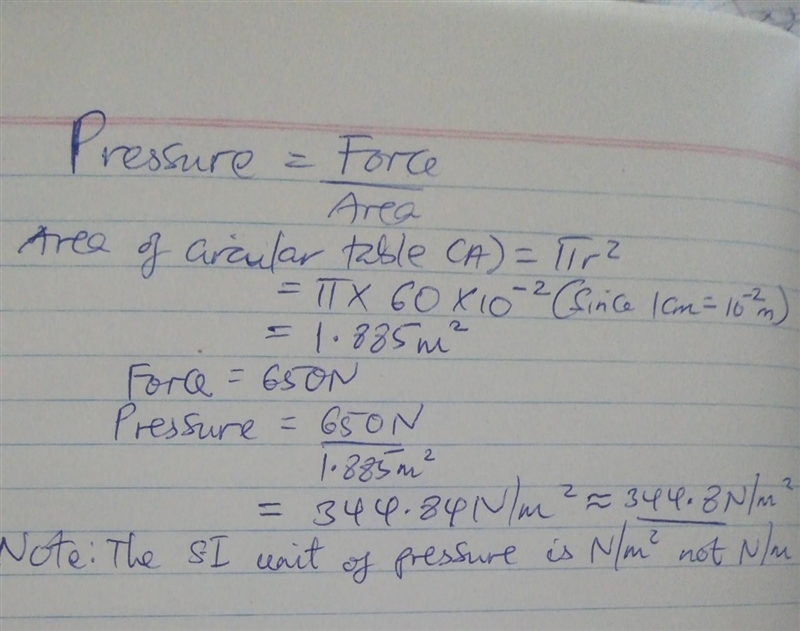 Pressure = Force
Area
Area of circular table (A) = πr²
= π × 60 × 10⁻² (Since 1cm = 10⁻²m)
= 1.885m²
Force = 650N
Pressure = 650N
1.885m²
= 344.841N/m² ≈ 344.8N/m²
Note: The SI unit of pressure is N/m² not N/m